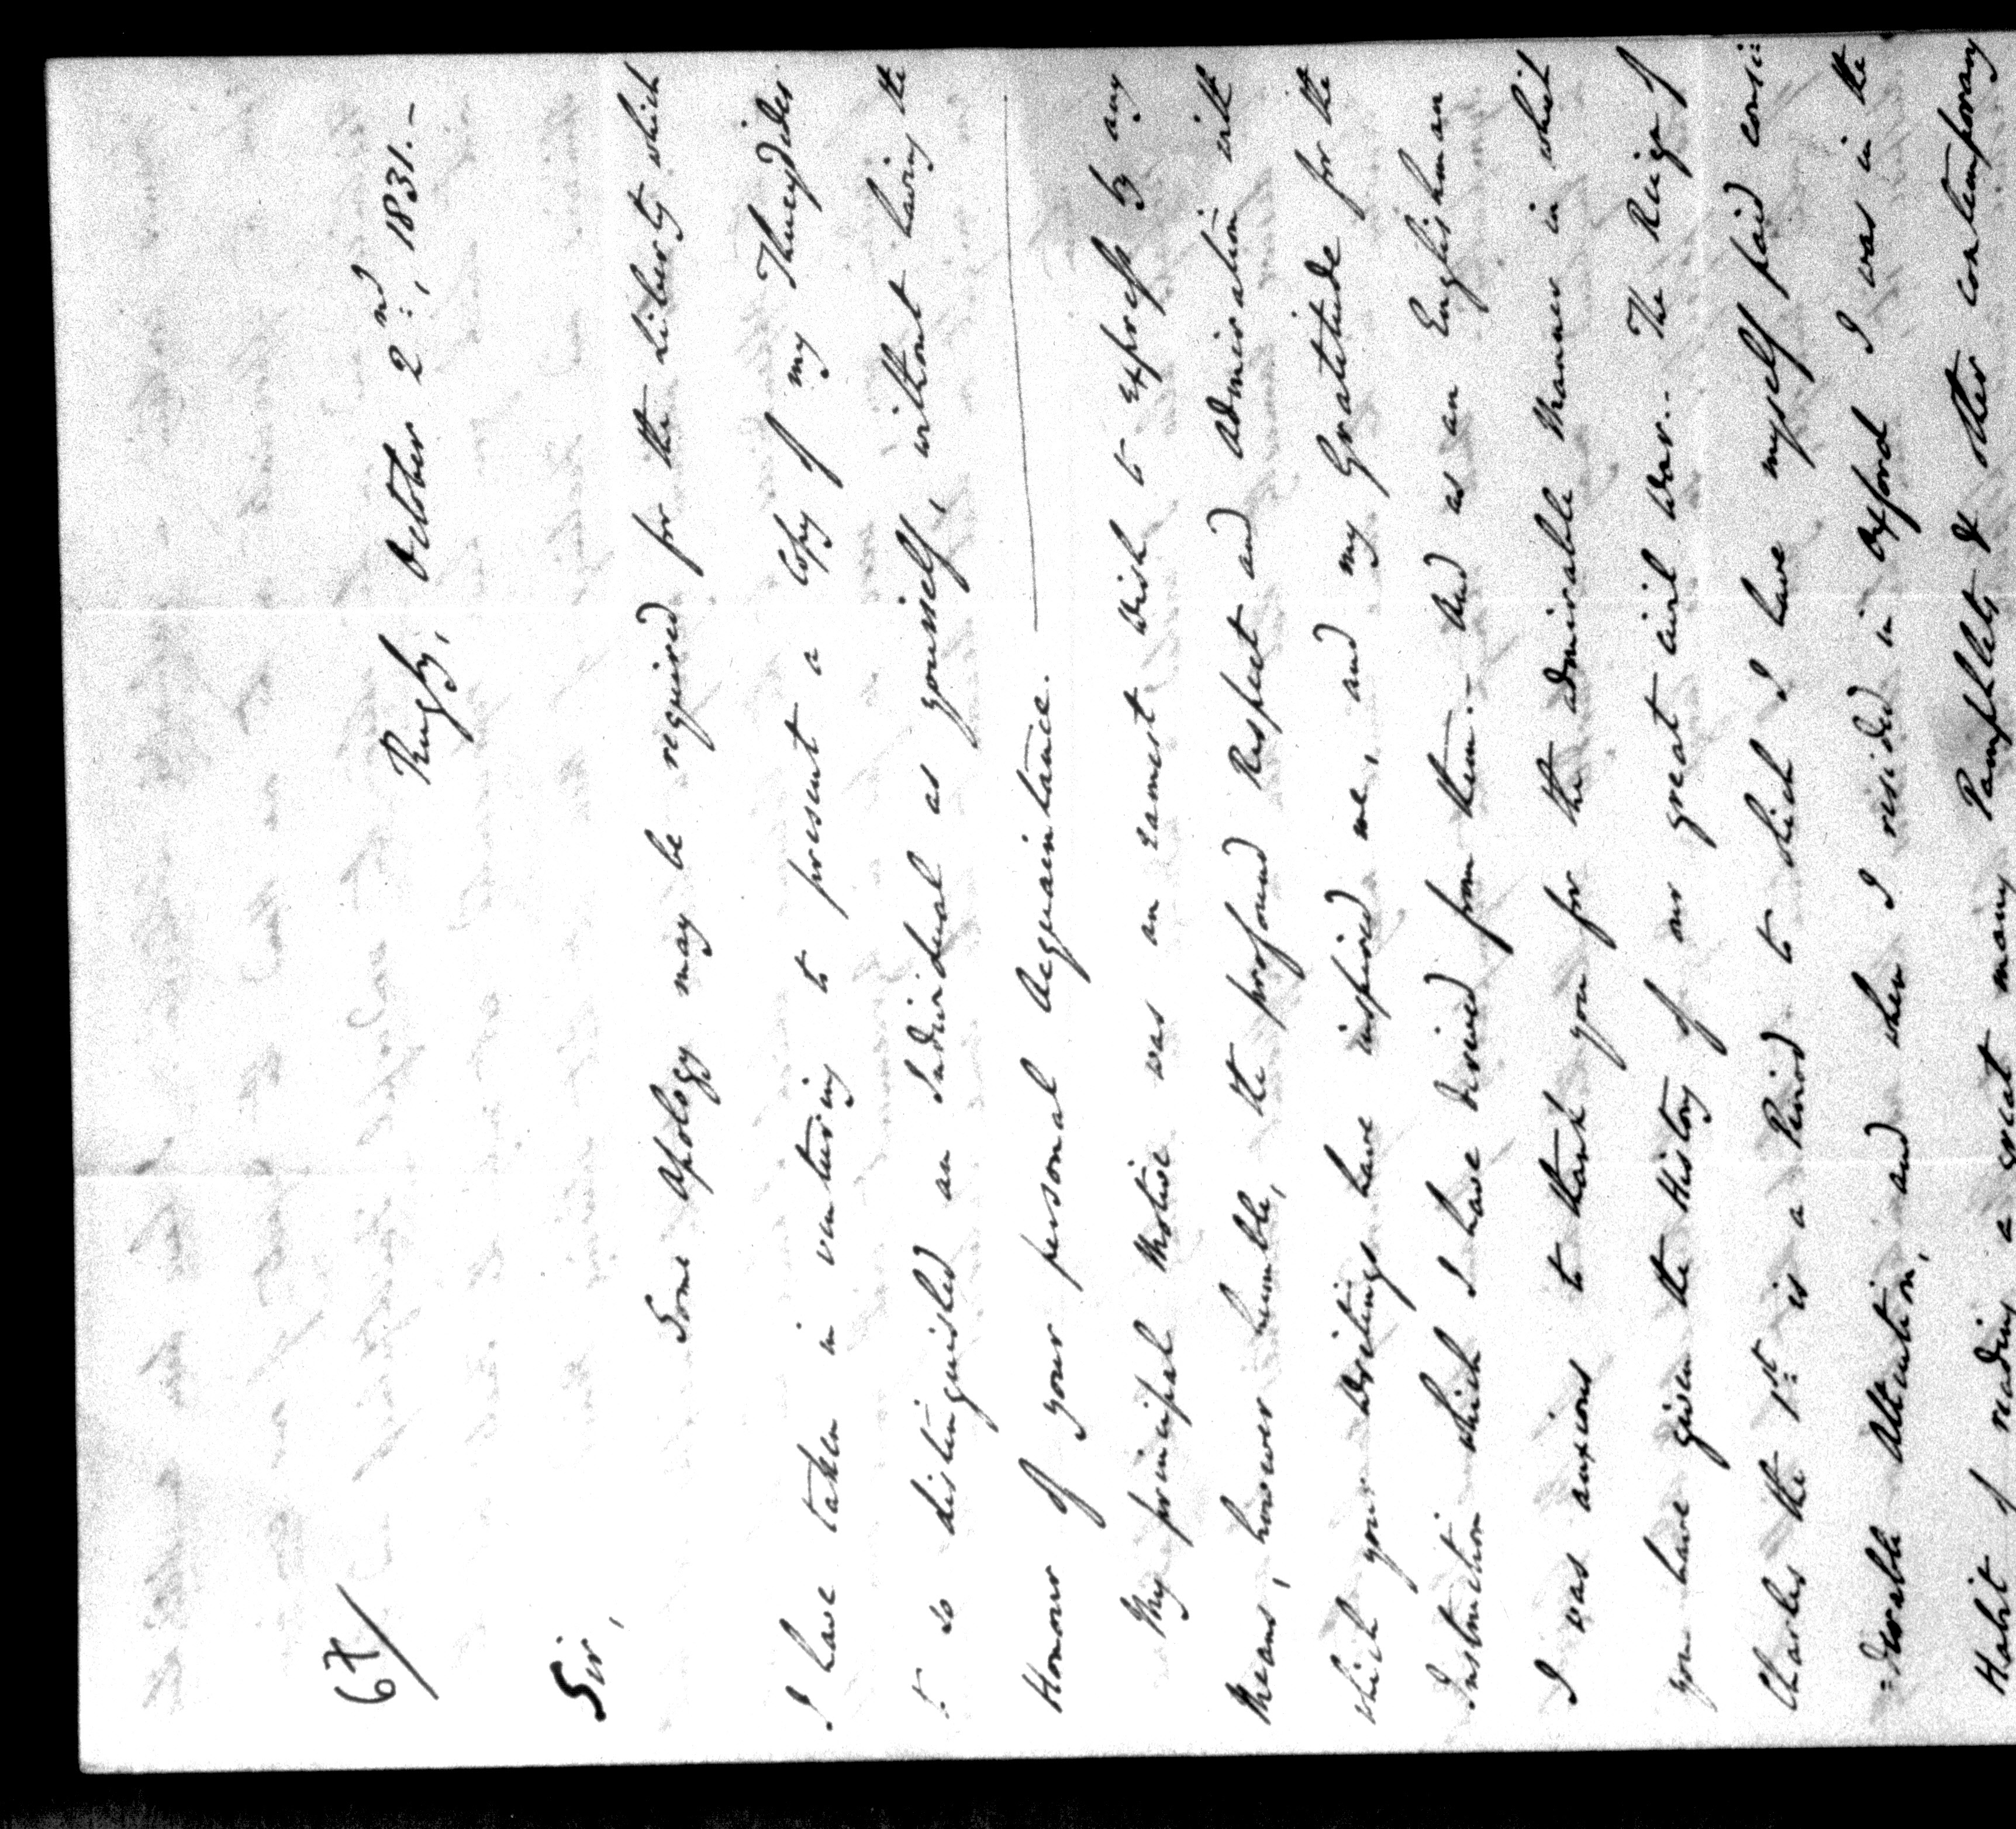 67/
Rugby, October 2nd:, 1831.-
Sir,
Some Apology may be required for the Liberty which
I have taken in venturing to present a Copy of my Thucydides
to so distinguished an Individual as yourself, without having the
Honour of your personal Acquaintance.
My principal Motive was an earnest Wish to express by any
Means, however humble, the profound Respect and Admiration with
which your Writings have inspired me, and my Gratitude for the
Instruction which I have derived from them.- And as an Englishman
I was anxious to thank you for the admirable Manner in which
you have given the History of our great civil War.. The Reign of
Charles the 1st: is a Period to which I have myself paid consi=
=derable Attention, and when I resided in Oxford I was in the
Habit of reading a great many Pamphlets & other contemporary